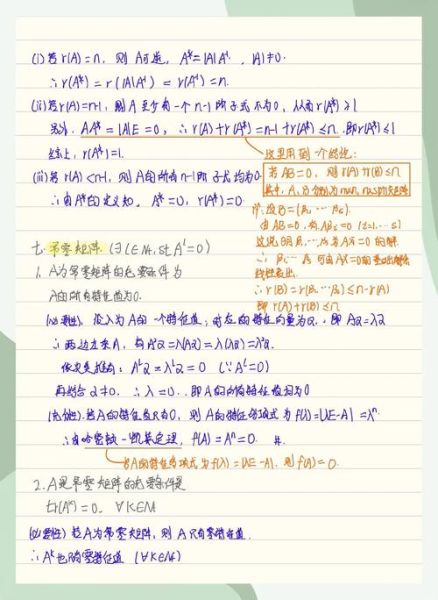 (i) 若 r(A)=n, 则 A可逆, A*=|A|A⁻¹, |A|≠0.
∴ r(A*) = r(|A|A⁻¹) = r(A⁻¹)=n.
(ii) 若 r(A)=n-1, 则 A 至少有一个 n-1 阶子式不为0, 从而 r(A*) ≥1
另外, AA*=|A|E=0, ∴ r(A)+r(A*)=n-1+r(A*)≤n. 即r(A*)≤1
综上, r(A*)=1.
(iii) 若 r(A)<n-1, 则 A的所有n-1阶子式均为0
∴由A*的定义知, A*=0, r(A*)=0.
这里用到一个结论:
若 AB=0, 则 r(A)+r(B)≤n
其中, A, B分别为m×n, n×s矩阵
设B=(β₁, ⋯ βs).
由AB=0, 有Aβi=0 (i=1,⋯s)
这说明β₁,⋯,βs为AX=0的解
∴ β₁, ⋯ βs 可由AX=0的基础解系
线性表出.
∴ r(B)=r(β₁,⋯βs)≤n-r(A)
即 r(A)+r(B)≤n.
七. 幂零矩阵. (∃ l∈N₊, s.t. Aˡ=0)
1. A为幂零矩阵的充要条件为
A的所有特征值为0.
(必要性). 设λ为A的一个特征值, 对应的特征向量为α. 即 Aα=λα
∴ 两边左乘A, 有A²α=λ(Aα)=λ(λα)=λ²α.
依次类推有: Aˡα=λˡα=0 (∵Aˡ=0)
再结合 α≠0, ∴ λ=0. 即A的所有特征值均为0
(充分性). 若A的特征值只有0, 则 A的特征多项式为 f(λ)=|λE-A|=λⁿ.
∴由哈密顿-凯莱定理, f(A)=Aⁿ=0. #.
若A的特征多项式为 f(λ)=|λE-A|, 则 f(A)=0.
2. A是幂零矩阵的充要条件是
tr(Aᵏ)=0, ∀K∈N₊
(必要性) 若A为幂零矩阵, 则 A只有零特征值.
∴ Aᵏ也只有零特征值 (∀K∈N₊)